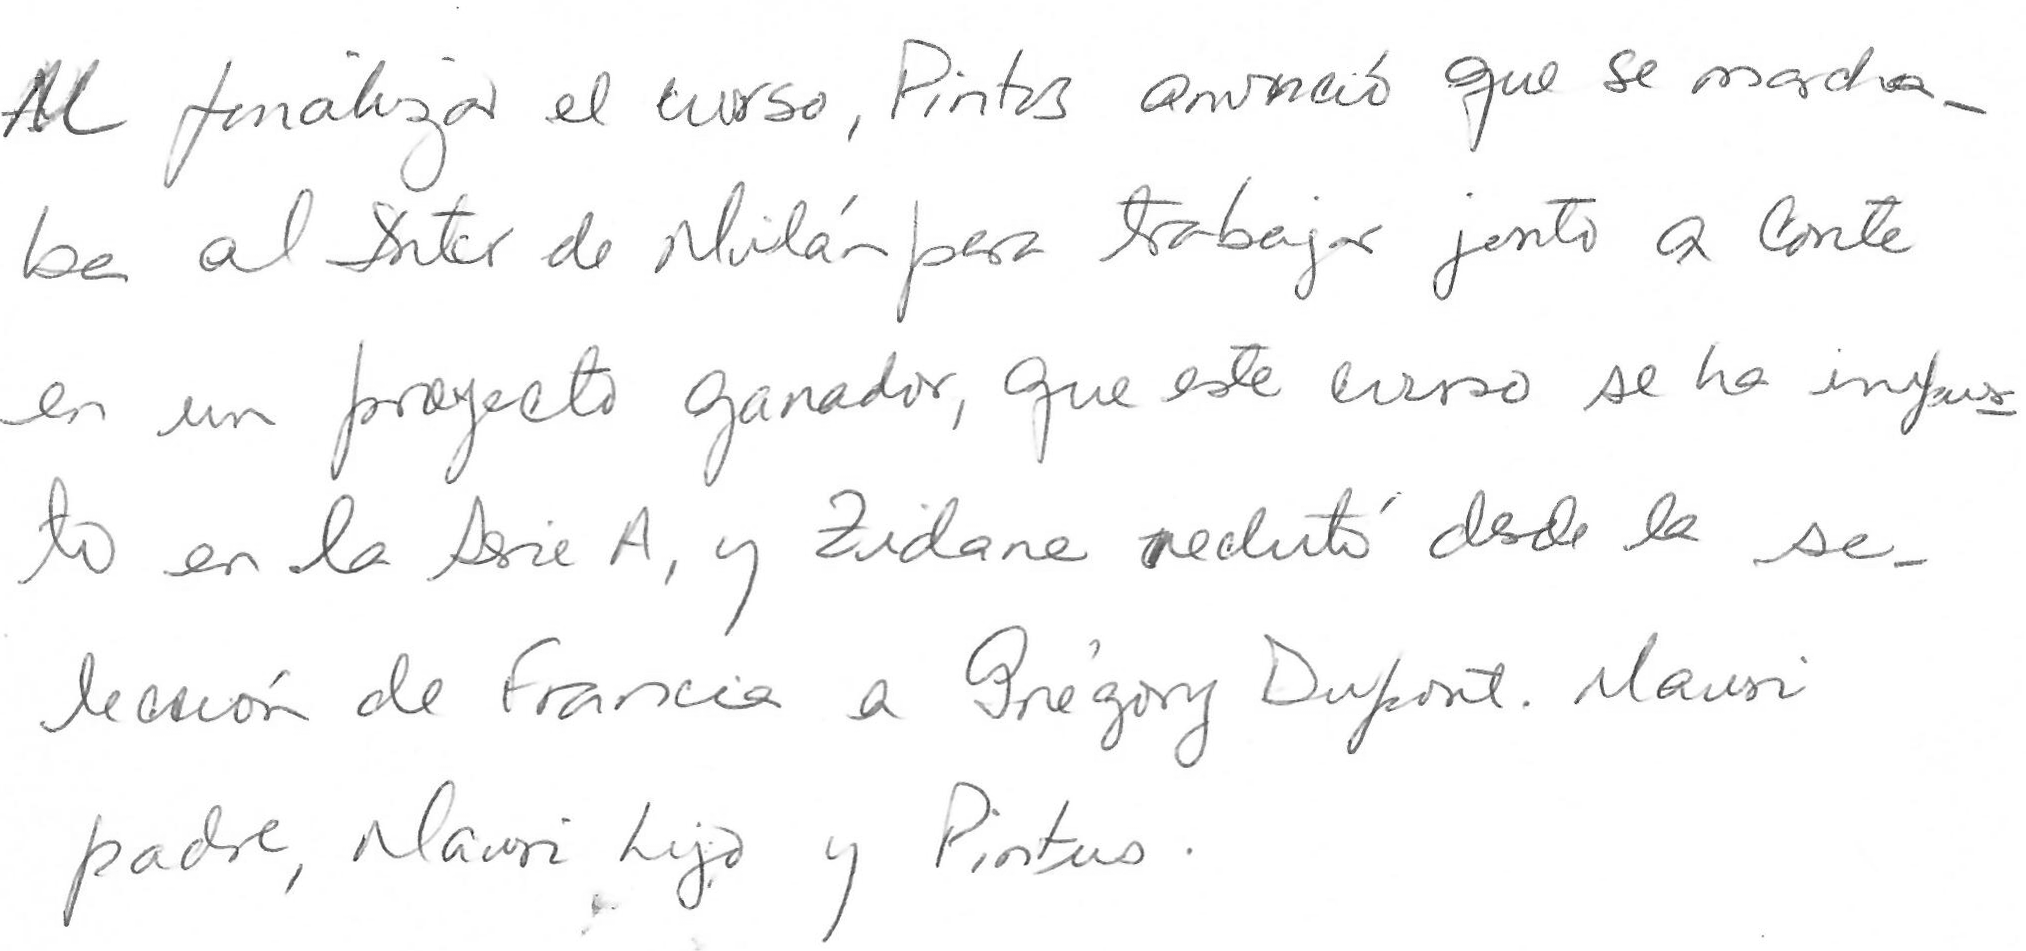 Al finalizar el curso, Pintus anunció que se marcha-
ba al Inter de Milán para trabajar junto a Conte
en un proyecto ganador, que este curso se ha impues-
to en la Serie A, y Zidane reclutó desde la se-
lección de Francia a Grégory Dupont. Mauri
padre, Mauri hijo y Pintus.